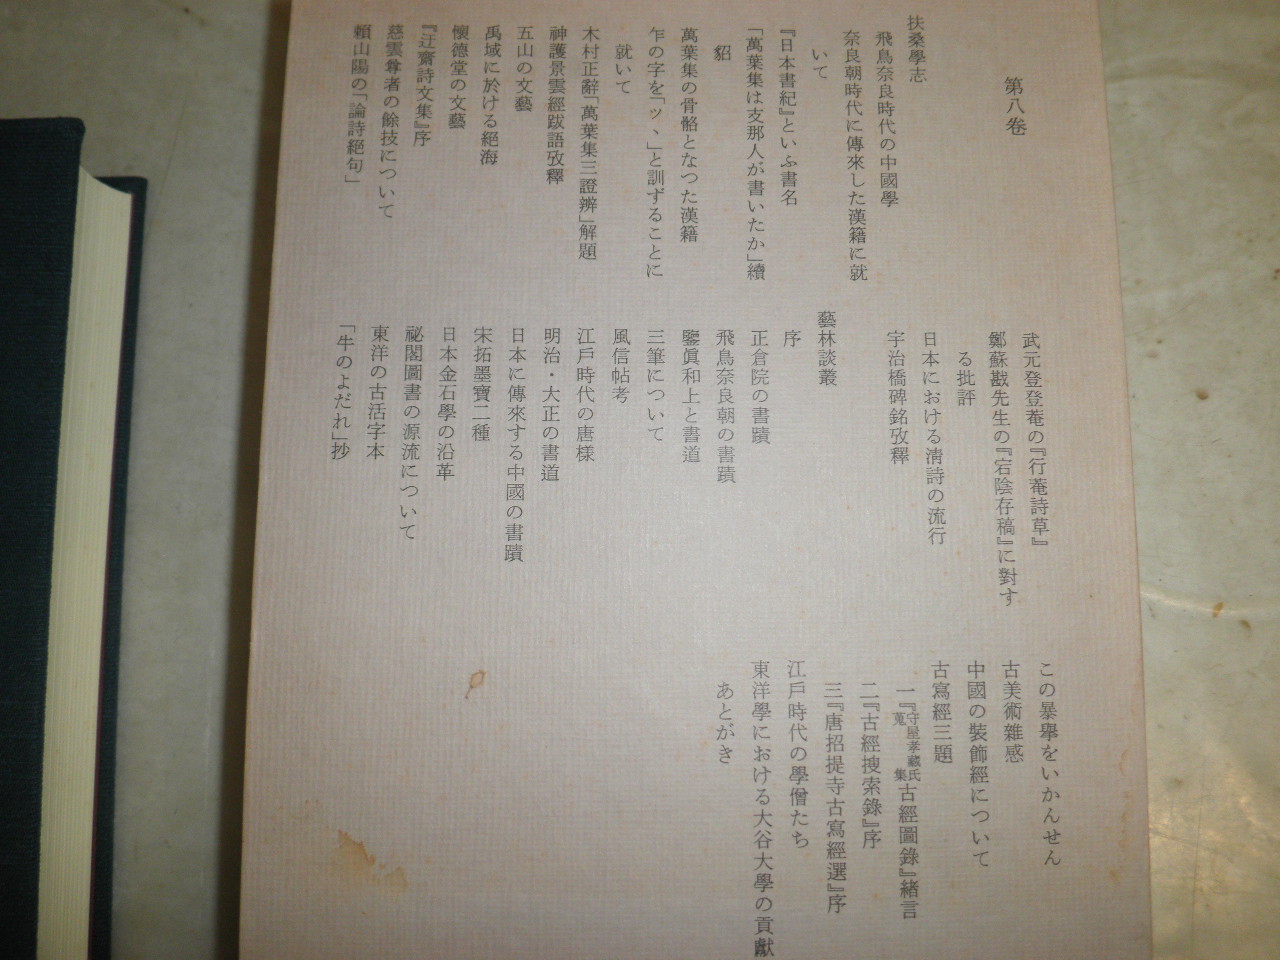 第八卷
扶桑學志
飛鳥奈良時代の中國學
奈良朝時代に傳來した漢籍に就
いて
『日本書紀』といふ書名
「萬葉集は支那人が書いたか」續
貂
萬葉集の骨骼となつた漢籍
乍の字を「ツヽ」と訓ずることに
就いて
木村正辭「萬葉集三證辨」解題
神護景雲經跋語攷釋
五山の文藝
禹域に於ける絕海
懷德堂の文藝
『迂齋詩文集』序
慈雲尊者の餘技について
賴山陽の「論詩絕句」
武元登登菴の『行菴詩草』
鄭蘇戡先生の『宕陰存稿』に對す
る批評
日本における淸詩の流行
宇治橋碑銘攷釋
藝林談叢
序
正倉院の書蹟
飛鳥奈良朝の書蹟
鑒眞和上と書道
三筆について
風信帖考
江戶時代の唐樣
明治・大正の書道
日本に傳來する中國の書蹟
宋拓墨寶二種
日本金石學の沿革
祕閣圖書の源流について
東洋の古活字本
「牛のよだれ」抄
この暴擧をいかんせん
古美術雜感
中國の裝飾經について
古寫經三題
一『守屋孝藏氏蒐集古經圖錄』緒言
二『古經搜索錄』序
三『唐招提寺古寫經選』序
江戶時代の學僧たち
東洋學における大谷大學の貢獻
あとがき